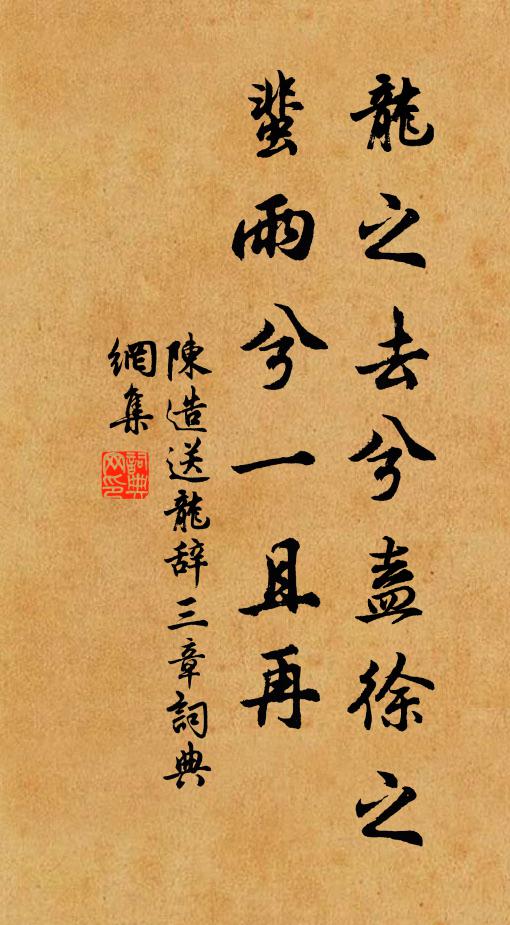 龍之去兮盍徐之
蜚雨兮一且再
陳造送龍辞三章詞典
網集
詞典網印